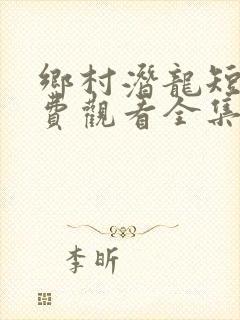 鄉村潛龍短
費觀看全集
李昕